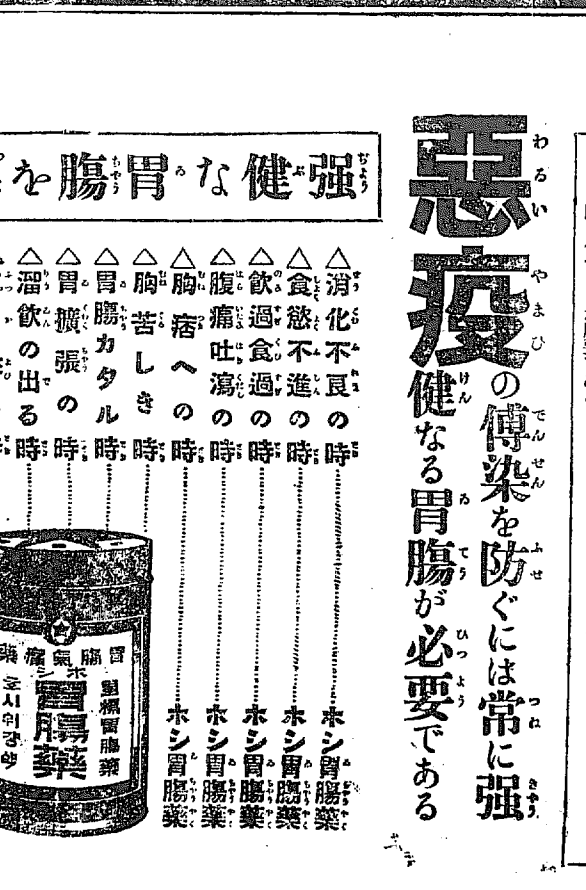 惡疫の傳染を防ぐには常に强
健なる胃腸が必要である
强健な胃腸を
△消化不良の時 ホシ胃腸藥
△食慾不進の時 ホシ胃腸藥
△飮過食過の時 ホシ胃腸藥
△腹痛吐瀉の時 ホシ胃腸藥
△胸痞への時 ホシ胃腸藥
△胸苦しき時
△胃腸カタル時
△胃擴張の時
△溜飮の出る時
ホシ
胃腸藥